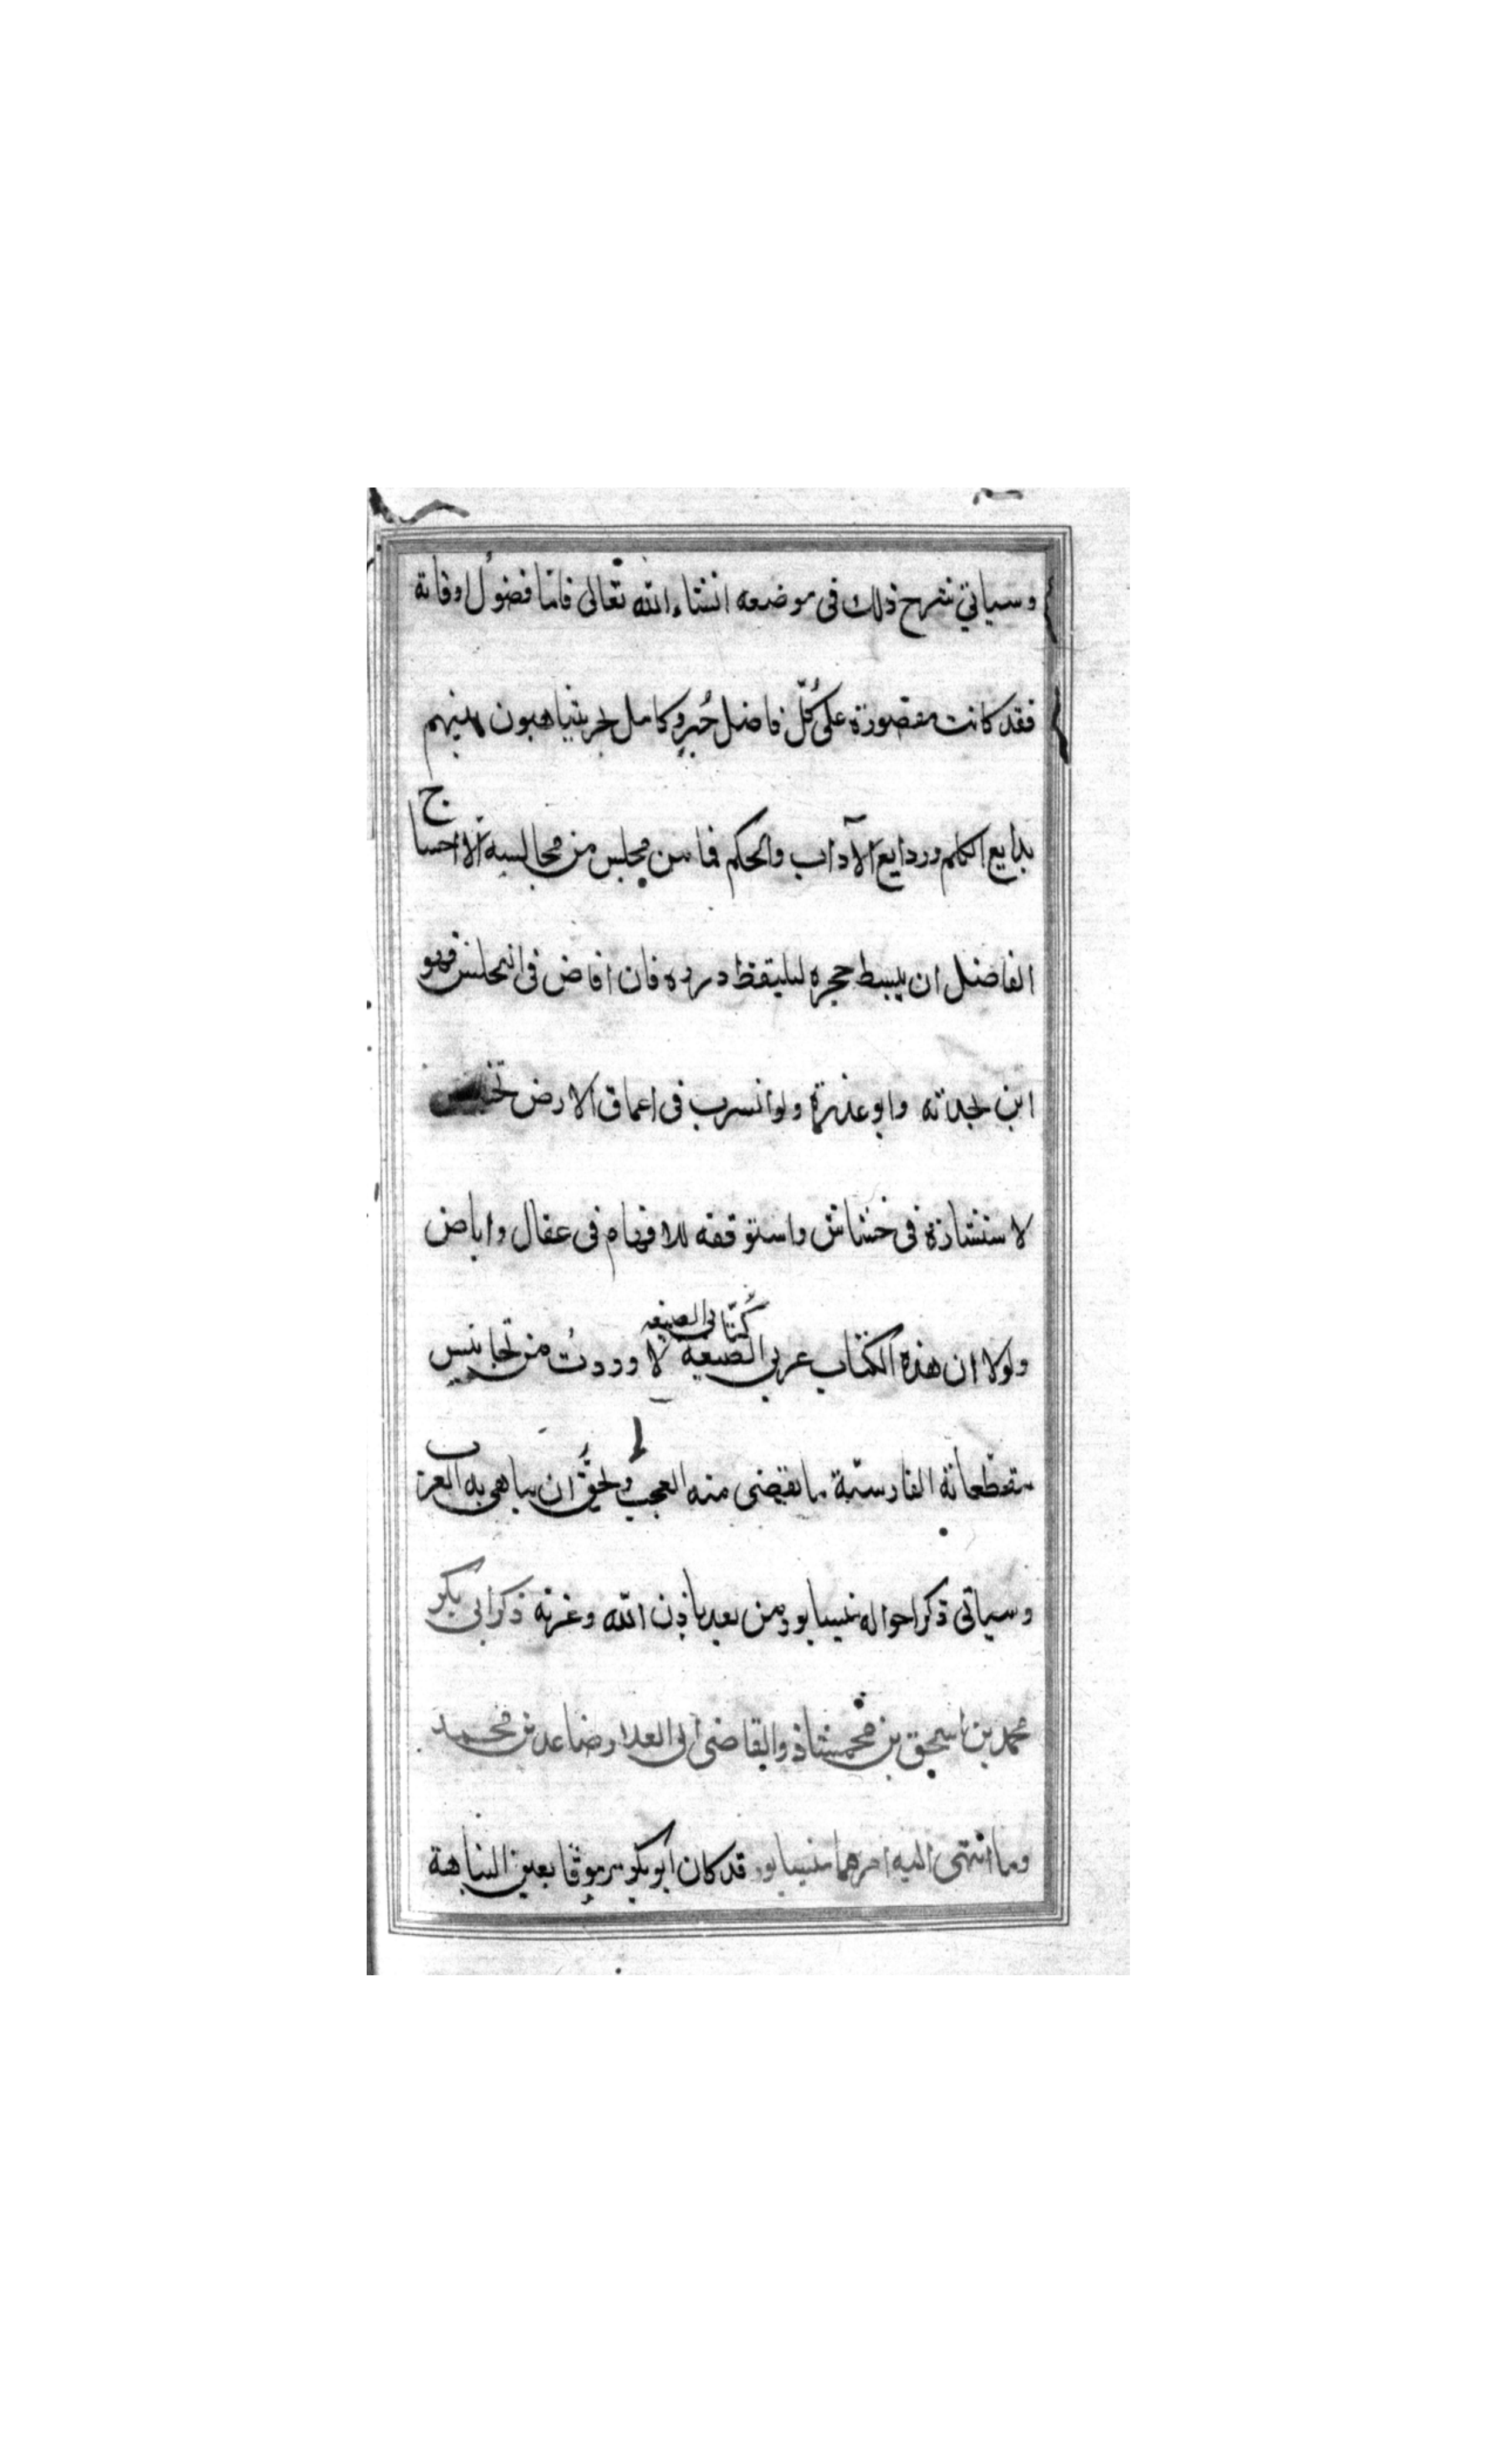 وسياتي شرح ذلك فى موضعه انشاء الله تعالى فامّا فضولُ اوقاته
فقد كانت مقصورة على كُلّ فاضل حُبر وكامل بحر يتباهبون بينهم
بدايع الكلم وردايع الآداب والحكم فما من مجلس من مجالسه الّا احتاج
الفاضل ان يبسط حجره ليليقظ درره فان افاض فى المجلس فهو
ابن بجدته وابو عذرة ولو انسرب فى اعماق الارض
لا ستشارة فى خشاش واستوقفه للافهام فى عقال واباض
كُتّابى الصنعه
ولولا ان هذه الكتاب عربى الصنعة لا وردتُ من تجانيس
مقطّعاته الفارسيّة ما يقضى منه العجب ولحقَّ ان يباهى به العرب
وسياتى ذكر احواله بنيسابور من بعد باذن الله وعزته ذكر ابى بكر
محمد بن اسحق بن محمشاذ والقاضى ابى العلاء صاعد بن محمد
وما انتهى اليه امرهما بنيسابور قد كان ابو بكر يرموقا بعين النباهة